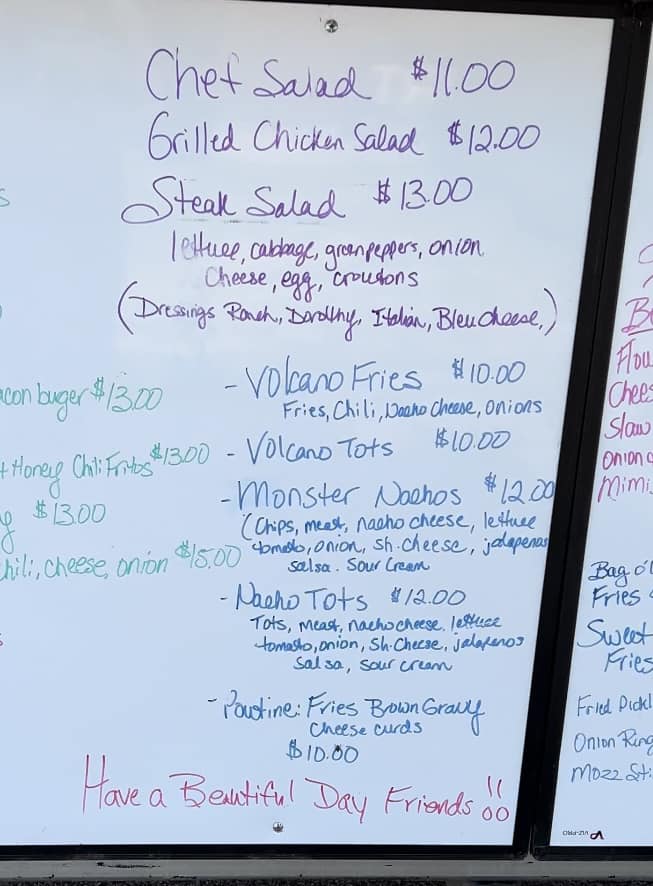 Chef Salad $11.00
Grilled Chicken Salad $12.00
Steak Salad $13.00
lettuce, cabbage, greenpeppers, onion
Cheese, egg, croutons
(Dressings Ranch, Dorothy, Italian, Bleu cheese,)
- Volcano Fries $10.00
Fries, Chili, Nacho Cheese, onions
- Volcano Tots $10.00
- Monster Nachos $12.00
(Chips, meat, nacho cheese, lettuce
tomato, onion, sh. cheese, jalapenos
salsa. Sour Cream
- Nacho Tots $12.00
Tots, meat, nacho cheese, lettuce
tomato, onion, Sh. Cheese, jalapenos
Salsa, sour cream
- Poutine: Fries Brown Gravy
Cheese curds
$10.00
Have a Beautiful Day Friends!!
buger $13.00
Honey Chili Fritos $13.00
$13.00
cheese, onion $15.00
Slaw
Bag o'
Fries
Sweet
Fries
Fried
Onion
Mozz